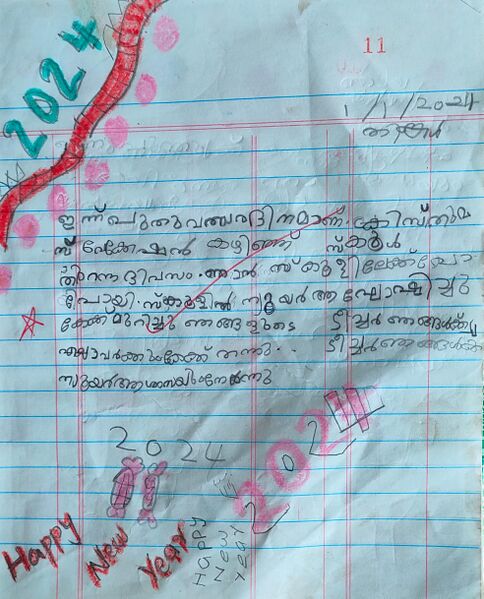 2024
11
1/1/2024
തിങ്കൾ
ഇന്ന് പുതുവത്സരദിനമാണ്. ക്രിസ്തുമ
സ് വേക്കേഷൻ കഴിഞ്ഞ് സ്കൂൾ
തുറന്ന ദിവസം. ഞാൻ സ്കൂളിലേക്ക് പോ
പോയി. സ്കൂളിൽ ന്യൂയർ ആഘോഷിച്ചു
കേക്ക് മുറിച്ചു ഞങ്ങളുടെ ടീച്ചർ ഞങ്ങൾക്ക്
എല്ലാവർക്കും കേക്ക് തന്നു.. ടീച്ചർ ഞങ്ങൾക്ക്
ന്യൂയർ ആശംസയും നേർന്നു
2024
2024
2024
Happy New Year
Happy
New
Year